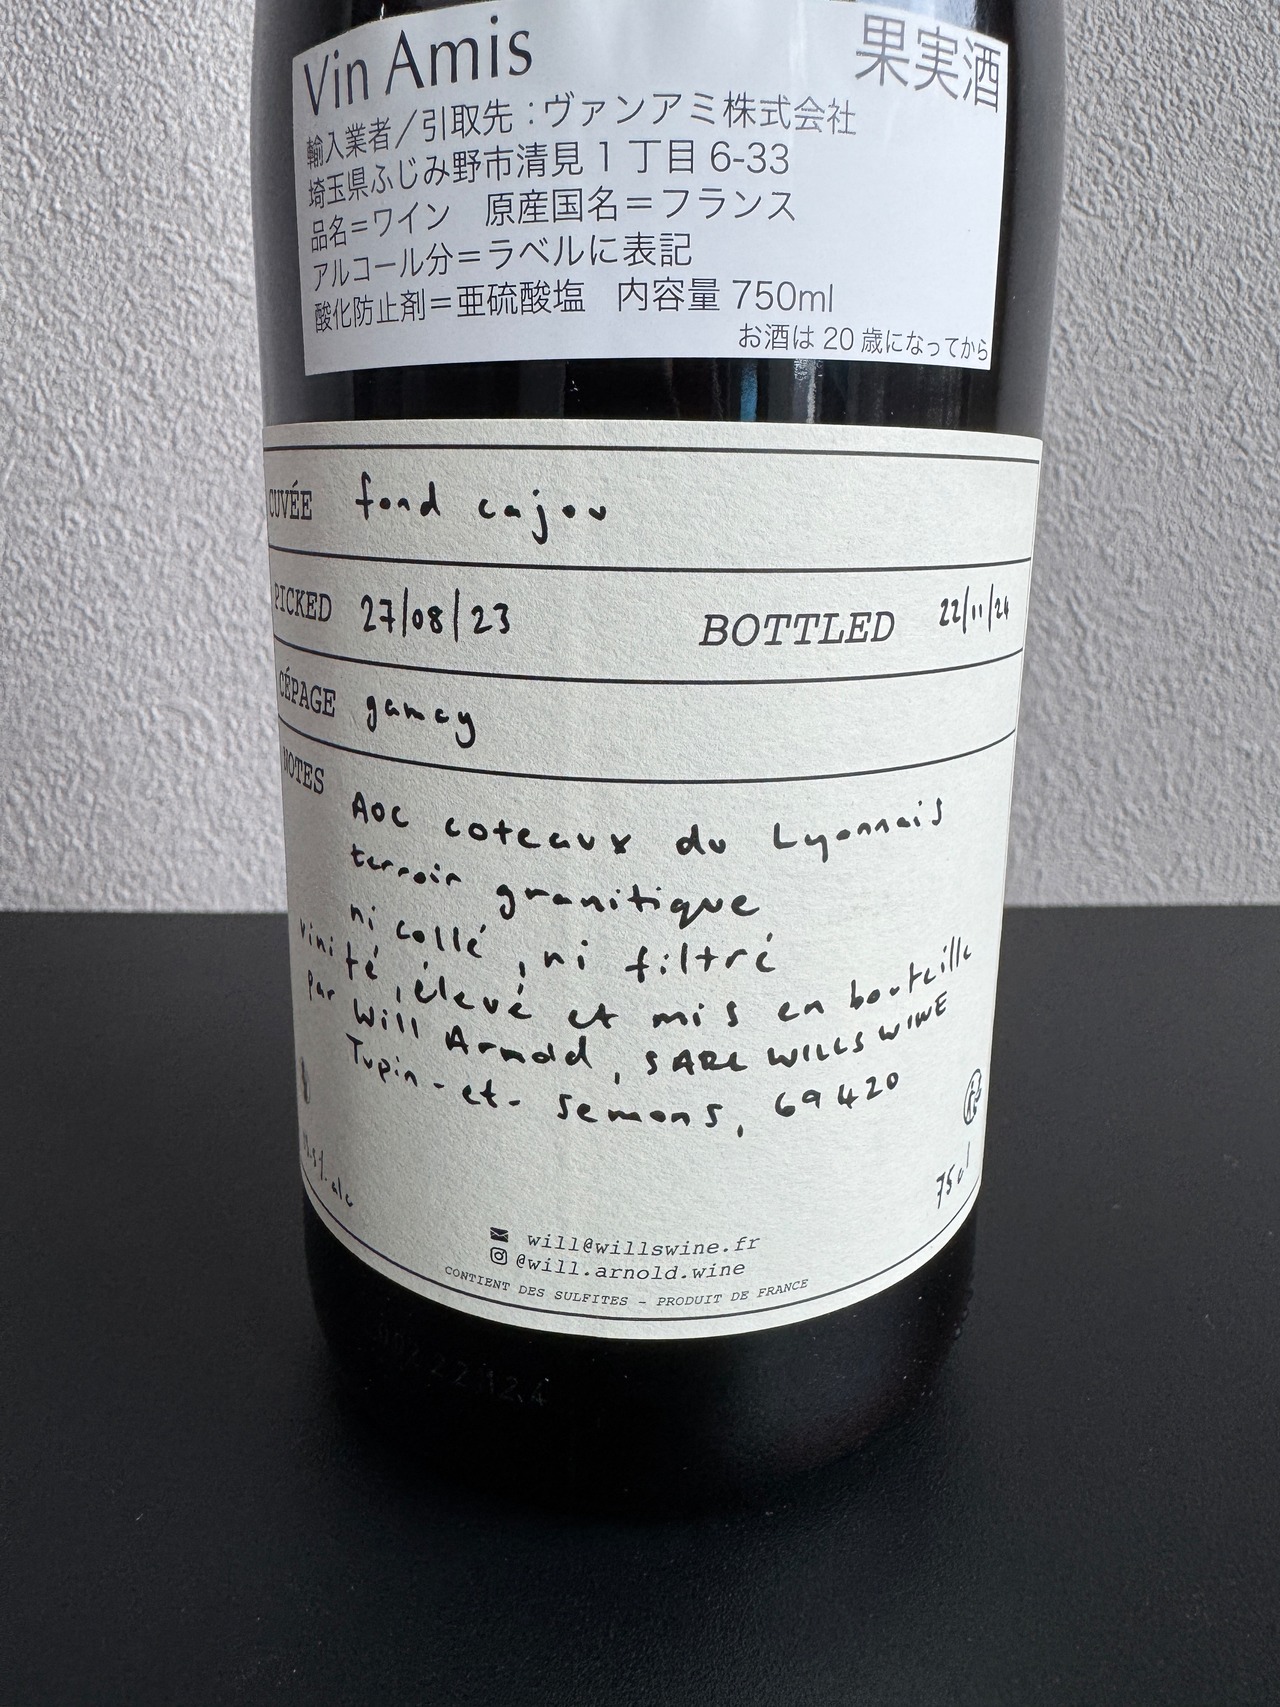 Vin Amis 果実酒
輸入業者/引取先:ヴァンアミ株式会社
埼玉県ふじみ野市清見1丁目6-33
品名=ワイン 原産国名=フランス
アルコール分=ラベルに表記
酸化防止剤=亜硫酸塩 内容量 750ml
お酒は20歳になってから
CUVÉE fond cajou
PICKED 27/08/23 BOTTLED 22/11/24
CÉPAGE gamay
NOTES
AOC coteaux du Lyonnais
terroir granitique
ni collé, ni filtré
vinifé, élevé et mis en bouteille
par Will Arnold, SARL WILLS WINE
Tupin-et-Semons, 69420
alc
75cl
will@willswine.fr
@will.arnold.wine
CONTIENT DES SULFITES - PRODUIT DE FRANCE